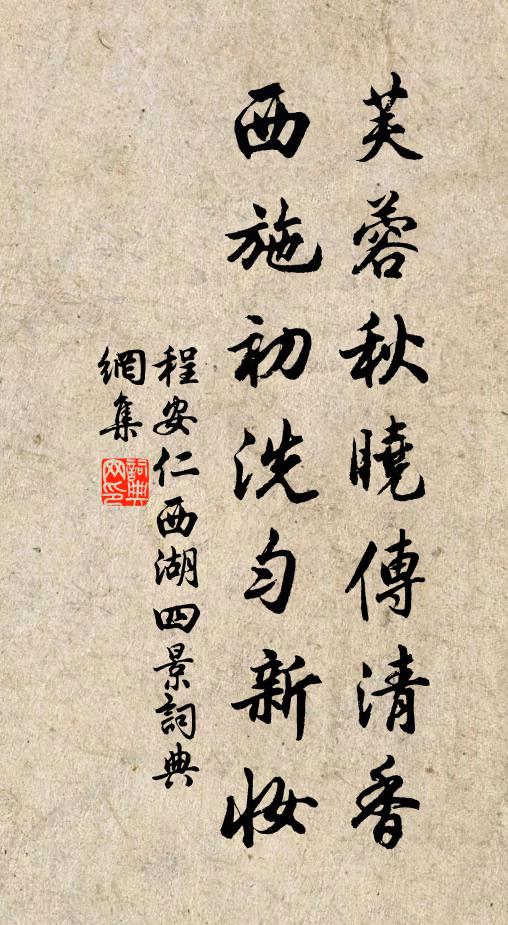 芙蓉秋曉傳清香
西施初洗勻新妝
程安仁西湖四景詞典
網集
詞典
网印